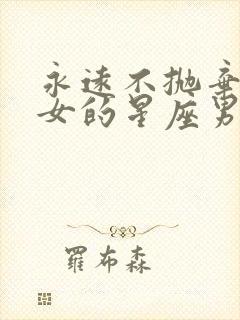 永远不抛弃
女的星座男
羅布森